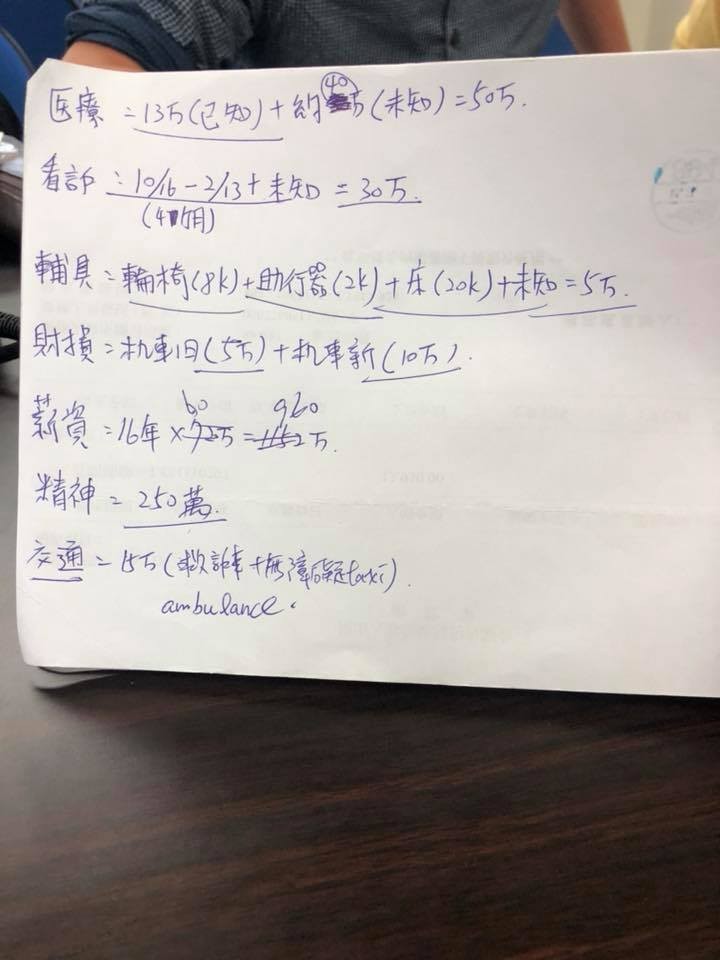 医療 = 13万(已知) + 約40万(未知) = 50万.
看診 : 10/16 - 2/13 + 未知 = 30万.
(4個月)
輔具 = 輪椅(8k) + 助行器(2k) + 床(20k) + 未知 = 5万.
財損 = 机車旧(5万) + 机車新(10万).
60 960
薪資 = 16年 × 72万 = 1152万.
精神 = 250萬.
交通 = 15万(救診車+無障礙taxi).
ambulance.